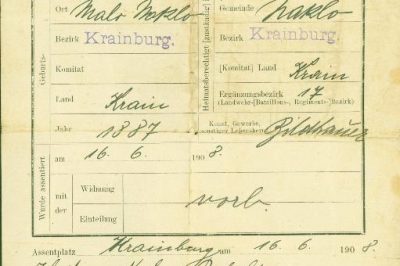 Ort Malo Naklo Gemeinde Naklo
Bezirk Krainburg. Bezirk Krainburg.
Geburts-
Heimatsberechtigt [zuständig]
Komitat [Komitat] Land Krain
Land Krain Ergänzungsbezirk 17
(Landwehr-[Bataillons-, Regiments-]Bezirk)
Jahr 1887 Kunst, Gewerbe, sonstiger Lebensberuf Bildhauer
Wurde assentiert
am 16. 6. 1908.
mit der Widmung vorb.
Einteilung
Assentplatz Krainburg am 16. 6. 1908.